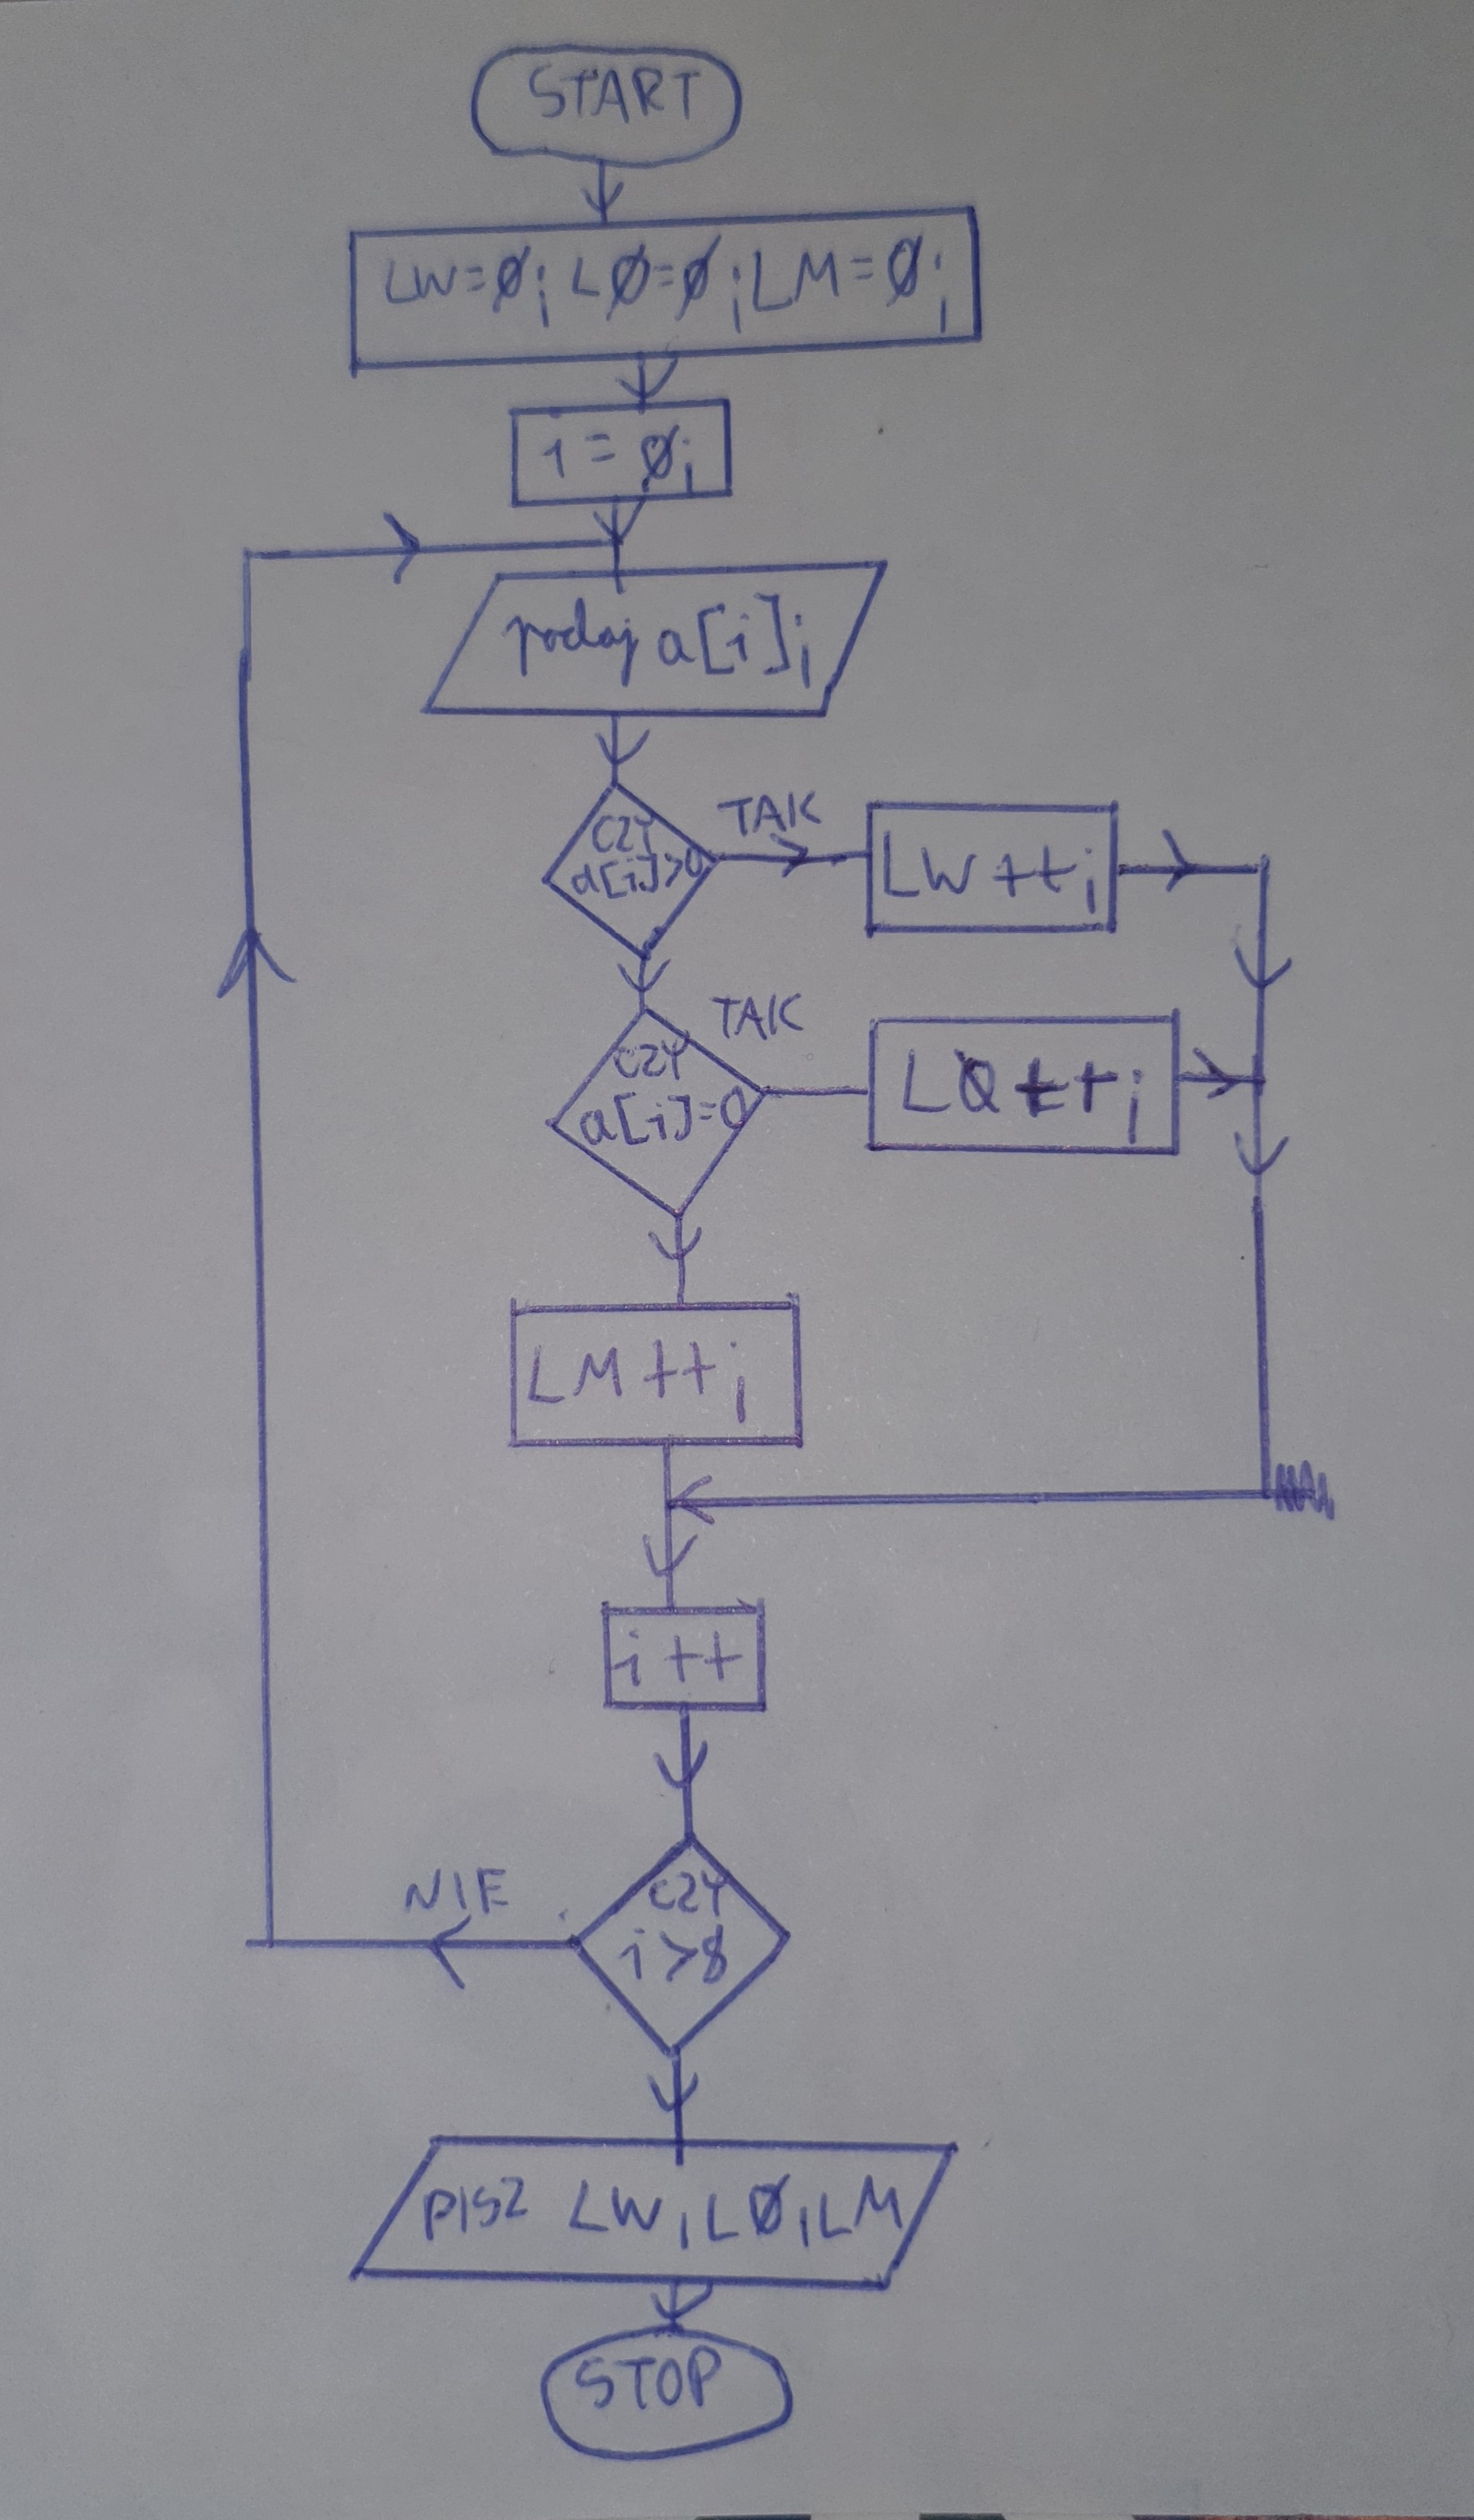 START
LW=0; L0=0; LM=0;
i=0;
podaj a[i];
CZY
a[i]>0
TAK
LW++;
CZY
a[i]=0
TAK
L0++;
LM++;
i++
CZY
i>8
NIE
PISZ LW, L0, LM
STOP